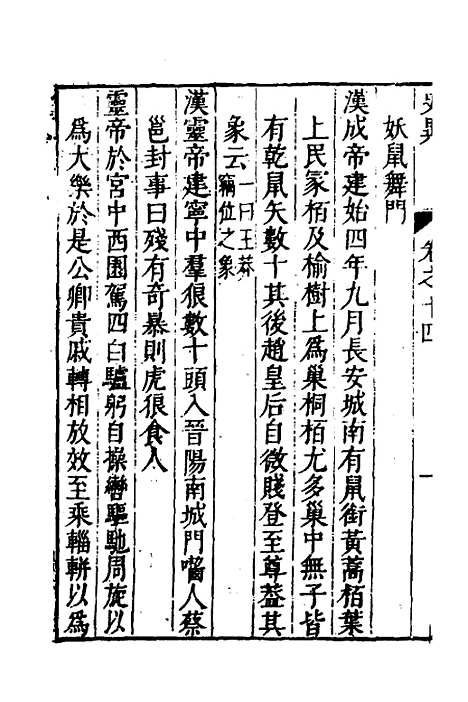 卷之十四 一
妖鼠舞門
漢成帝建始四年九月長安城南有鼠銜黃蒿栢葉
上民冡栢及榆樹上爲巢桐栢尤多巢中無子皆
有乾鼠矢數十其後趙皇后自微賤登至尊葢其
象云一曰王莽竊位之象
漢靈帝建寧中羣狼數十頭入晉陽南城門嚙人蔡
邕封事曰殘有奇暴則虎狼食人
靈帝於宮中西園駕四白驢躬自操轡驅馳周旋以
爲大樂於是公卿貴戚轉相放效至乘輜軿以爲